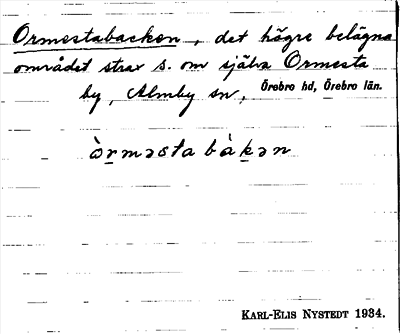 Ormestabacken, det högre belägna
området strax s. om själva Ormesta
by, Almby sn, Örebro hd, Örebro län.
òrməstabàkən
KARL-ELIS NYSTEDT 1934.